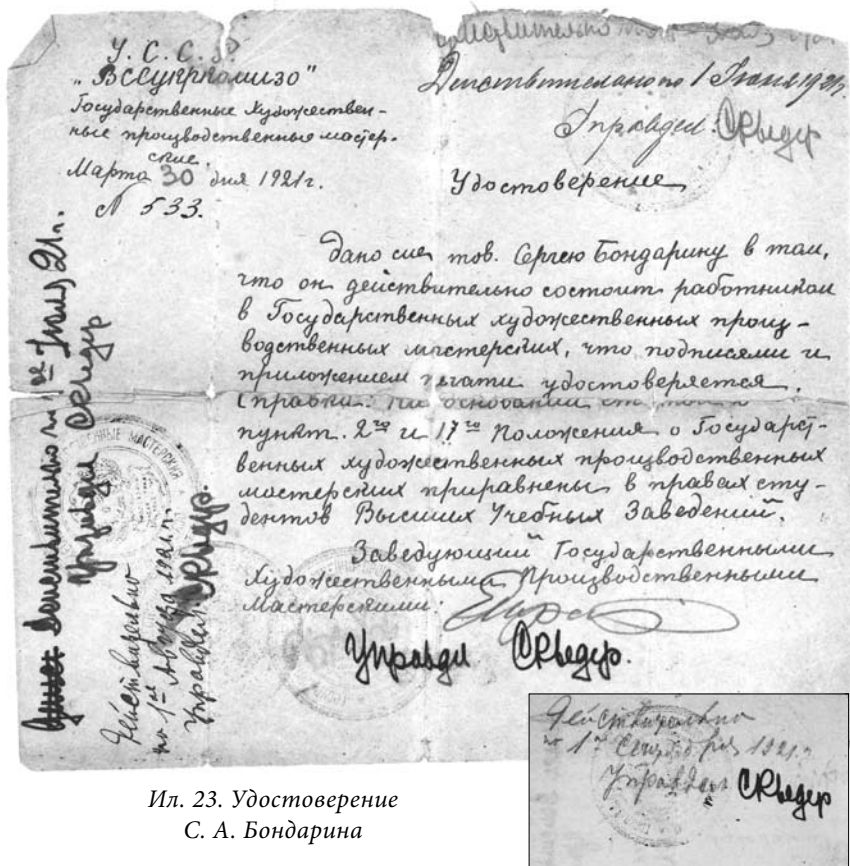 У. С. С. Р.
„Всеукркомизо"
Государственные Художествен-
ные производственные мастер-
ские.
Марта 30 дня 1921 г.
N 533.
Действительно по 1 Июня 1921 г.
Управдел.
Удостоверение
Дано сие тов. Сергею Бондарину в том,
что он действительно состоит работником
в Государственных художественных произ-
водственных мастерских, что подписями и
приложением печати удостоверяется.
Справка: На основании
пункт. 2го и 17го Положения о Государст-
венных художественных производственных
мастерских приравнены в правах сту-
дентов Высших Учебных Заведений.
Заведующий Государственными
Художественными Производственными
Мастерскими:
Управдел
Действительно по 1ое 21 г.
Управдел
Действительно
по 1ое Августа 1921 г.
Управдел.
МАСТЕРСКИЙ
Действительно
по 1ое Сентября 1921 г.
Управдел
Ил. 23. Удостоверение
С. А. Бондарина